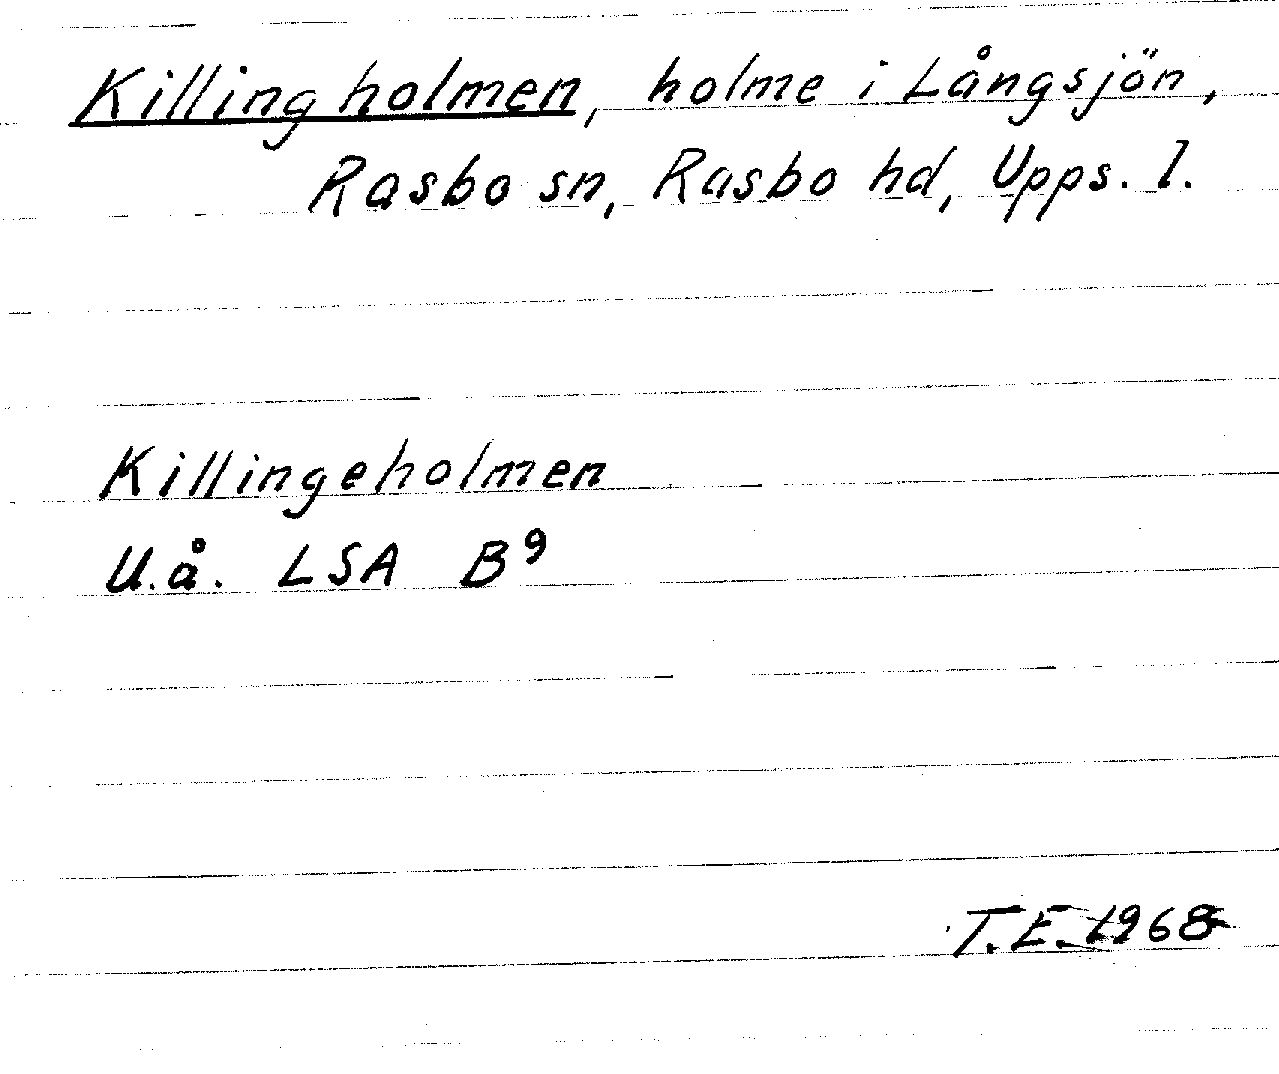 Killingholmen, holme i Långsjön,
Rasbo sn, Rasbo hd, Upps. l.
Killingeholmen
U.å. LSA B⁹
T.E. 1968